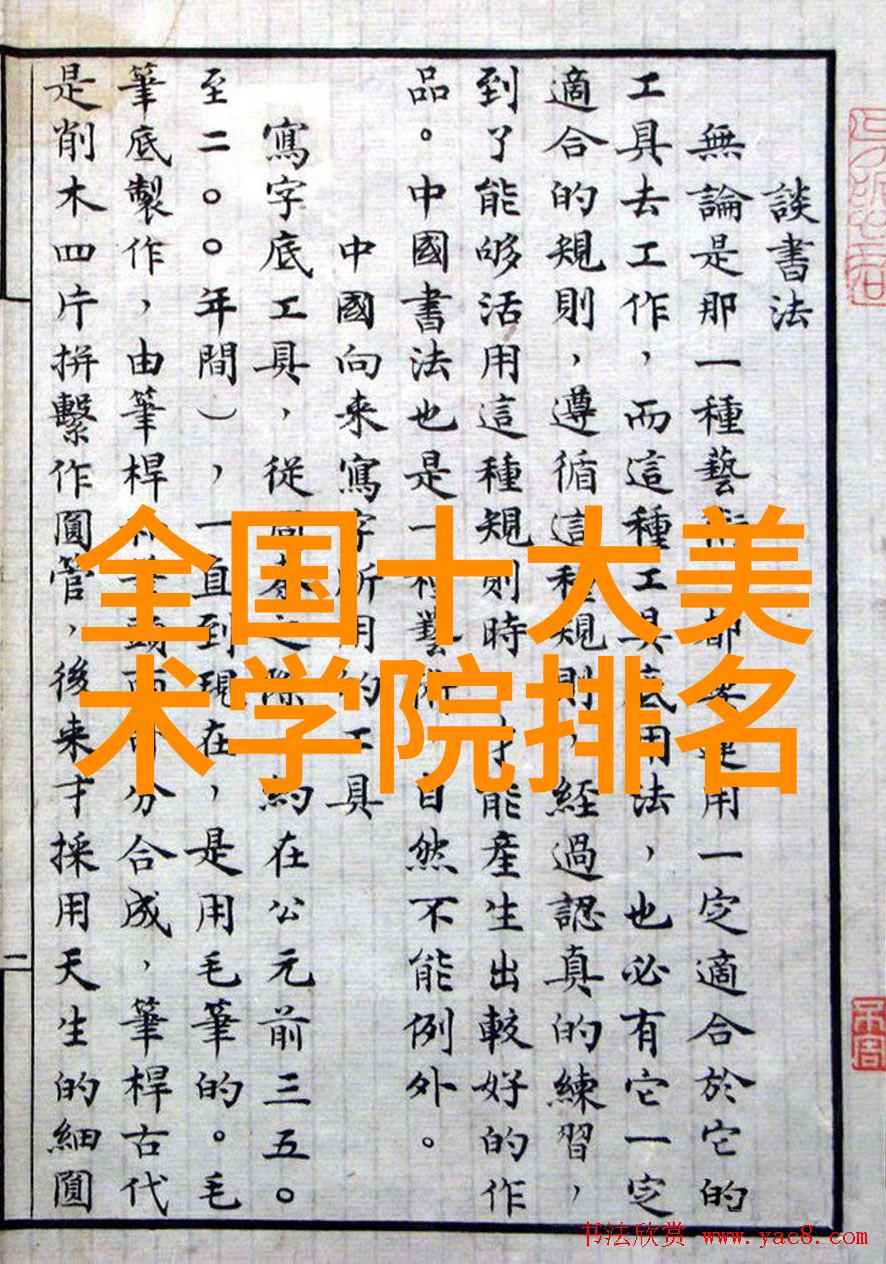 談書法
無論是那一種藝術都運用一定適合於它的
工具去工作，而這種工具底用法，也必有它一定
適合的規則，遵循這種規則，經過認真的練習，
到了能够活用這種規則時，才能產生出較好的作
品。中國書法也是一種藝術，自然不能例外。
中國向来寫字所用的工具
寫字底工具，從周秦之際約在公元前三五〇
至二〇〇年間），一直到現在，是用毛筆的。毛
筆底製作，由筆桿和筆頭兩部分合成，筆桿古代
是削木四片拼繫作圓管，後来才採用天生的細圓
二
全国十大美
术学院排名
书法欣赏 www.yac8.com